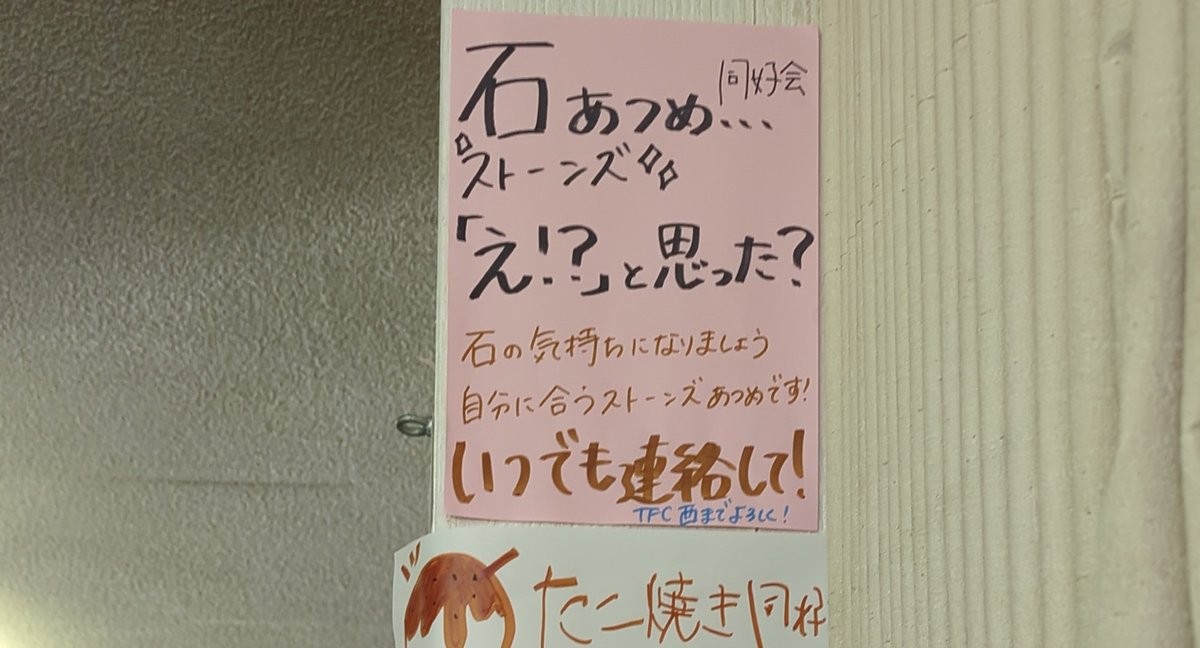 石あつめ...同好会
ストーンズ
「え!?」と思った?
石の気持ちになりましょう
自分に合うストーンズあつめです!
いつでも連絡して!
TFC 西までよろしく!
たこ焼き同好